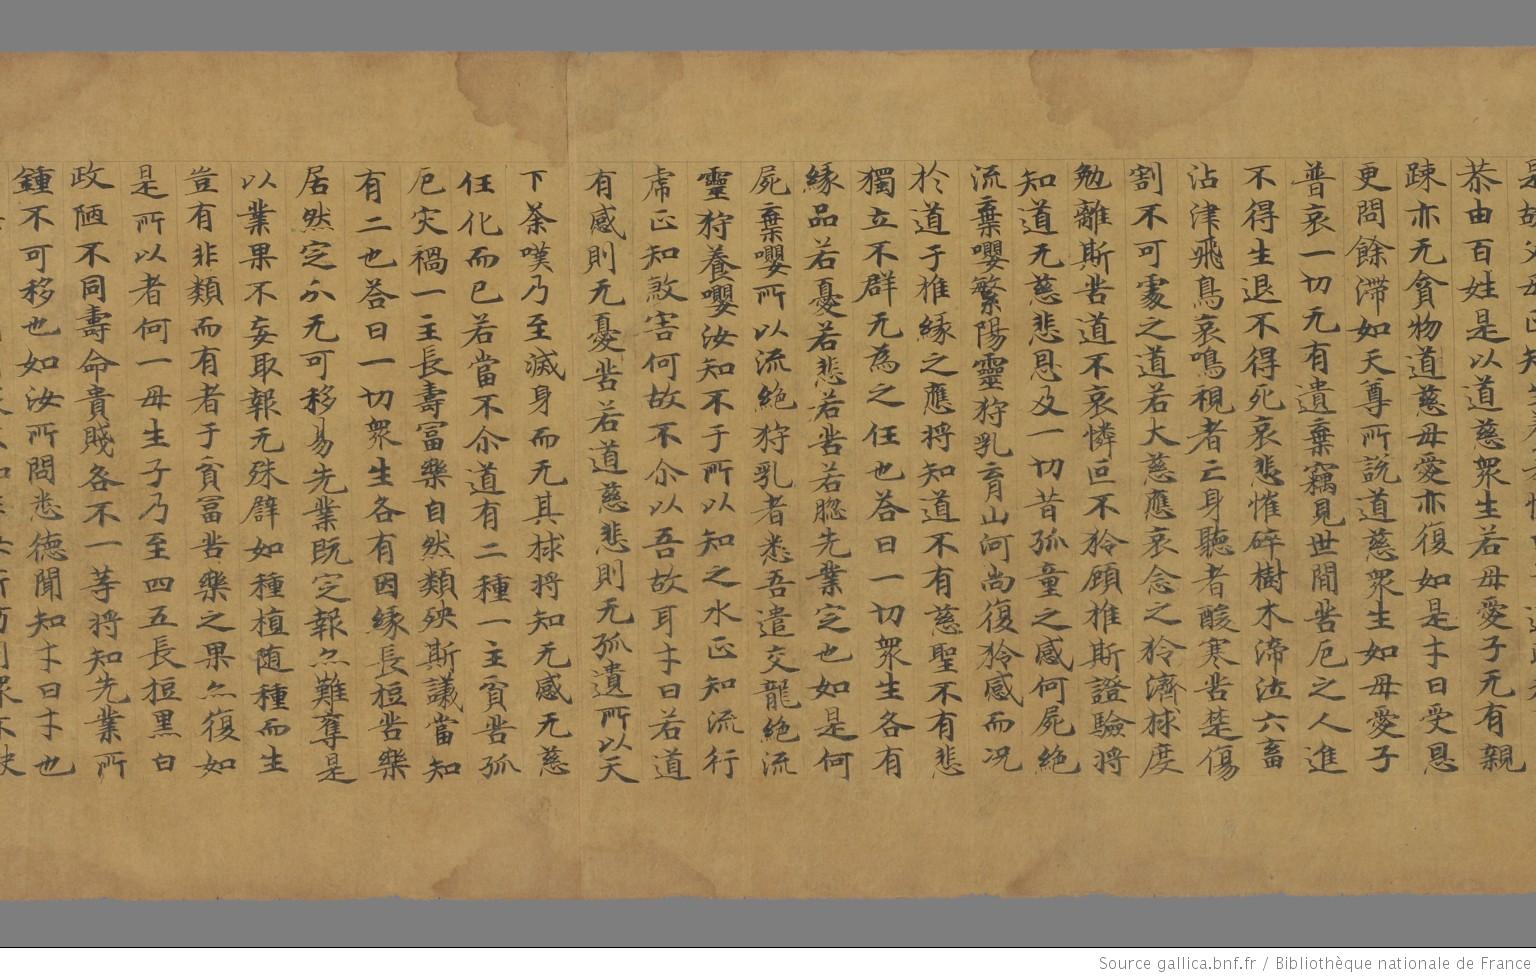 恭由百姓是以道慈衆生若母愛子无有親
踈亦无貧物道慈母愛亦復如是才曰受恩
更問餘滯如天尊所説道慈衆生如母愛子
普哀一切无有遺棄竊見世間苦厄之人進
不得生退不得死哀悲摧碎樹木渧泣六畜
沾津飛鳥哀鳴視者亡身聽者酸寒苦楚傷
割不可處之道若大慈應哀念之矜濟救度
勉離斯苦道不哀憐回不矜顧推斯證驗將
知道无慈悲恩及一切昔孤童之感何屍絶
流棄嬰繁陽靈狩乳育山河尚復矜感而况
於道于推縁之應將知道不有慈聖不有悲
獨立不群无為之任也荅曰一切衆生各有
緣品若憂若悲若苦若惱先業定也如是何
屍棄嬰所以流絶狩乳者悉吾遣交龍絶流
靈狩養嬰汝知不于所以知之水正知流行
虎正知煞害何故不尒以吾故耳才曰若道
有感則无憂苦若道慈悲則无孤遺所以天
下荼嘆乃至滅身而无其救將知无感无慈
任化而已若當不尒道有二種一主貧苦孤
厄灾禍一主長壽冨樂自然類殃斯議當知
有二也荅曰一切衆生各有因緣長短苦樂
居然定分无可移易先業既定報亦難奪是
以業果不妄取報无殊辟如種植随種而生
豈有非類而有者于貧冨苦樂之果亦復如
是所以者何一母生子乃至四五長短黑白
政陋不同壽命貴賤各不一等將知先業所
鍾不可移也如汝所問悉德聞知才曰才也
Source gallica.bnf.fr / Bibliothèque nationale de France